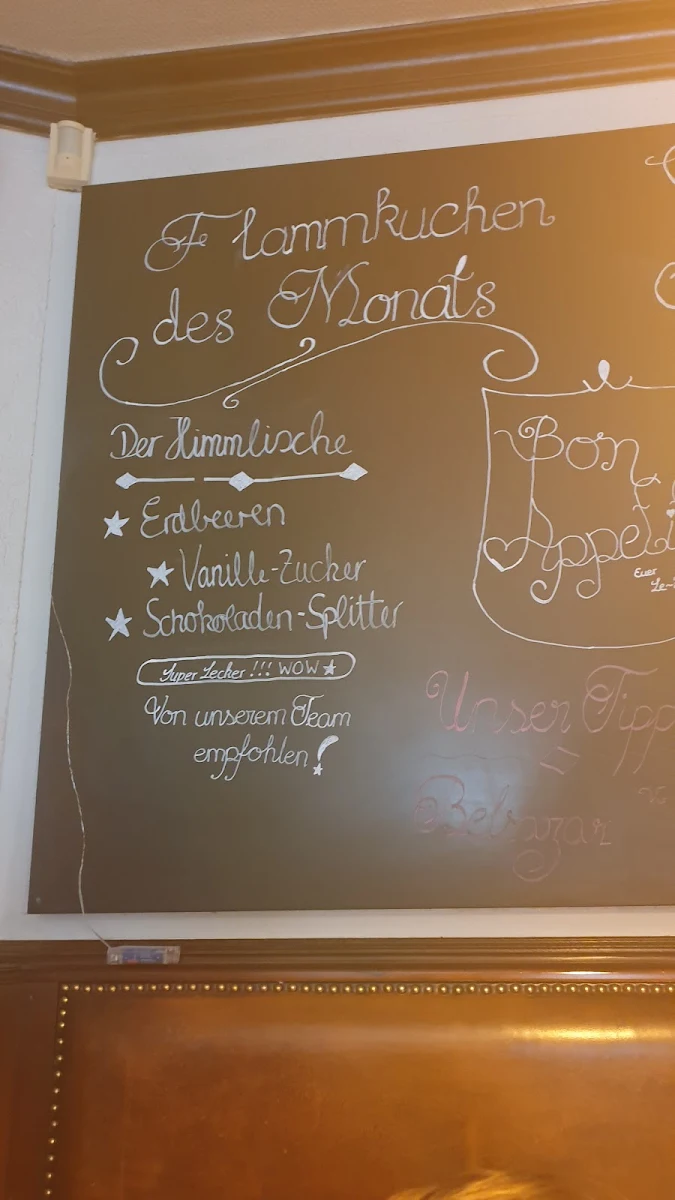 Flammkuchen
des Monats
Der Himmlische
Erdbeeren
Vanille-Zucker
Schokoladen-Splitter
Super Lecher !!! WOW
Von unserem Team
empfohlen!
Bon
Appeti
Euer
Le-
Unser Tipp
Belsazar